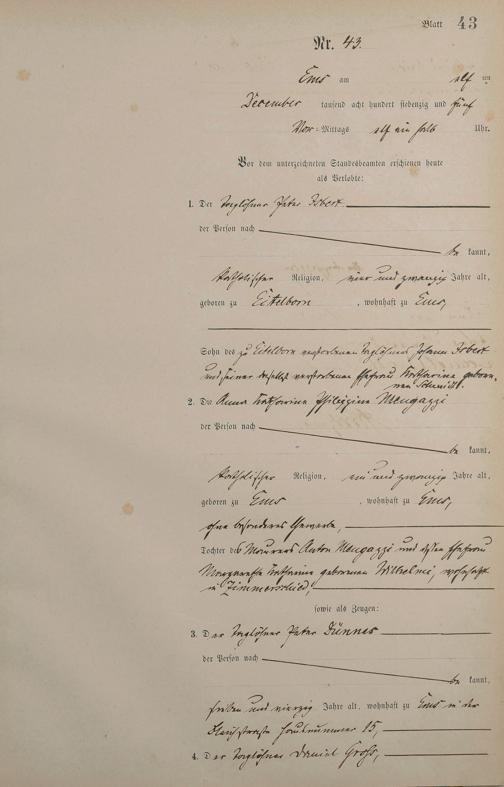 Blatt 43
Nr. 43.
Ems am elf ten
December tausend acht hundert siebenzig und fünf
Vor=Mittags elf ein halb Uhr.
Vor dem unterzeichneten Standesbeamten erschienen heute
als Verlobte:
1. Der Taglöhner Peter
der Person nach
be kannt,
katholischer Religion, vier und zwanzig Jahre alt,
geboren zu Eitelborn, wohnhaft zu Ems,
Sohn des zu Eitelborn verstorbenen Taglöhners Johann
und seiner daselbst verstorbenen Ehefrau Katharina gebore-
nen Schmidt.
2. Die Anna Katharina Philippine Mengazzi
der Person nach
be kannt,
katholischer Religion, ein und zwanzig Jahre alt,
geboren zu Ems, wohnhaft zu Ems,
ohne besonderes Gewerbe,
Tochter des Maurers Anton Mengazzi und dessen Ehefrau
Margaretha Katharina geborenen Wilhelmi, wohnhaft
in Zimmerschied,
sowie als Zeugen:
3. Der Taglöhner Peter Dünnes
der Person nach
be kannt,
sieben und vierzig Jahre alt, wohnhaft zu Ems in der
Hausnummer 15,
4. Der Taglöhner Daniel Groß,